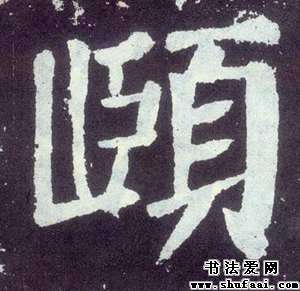 頤
书法爱网
www.shufaai.com